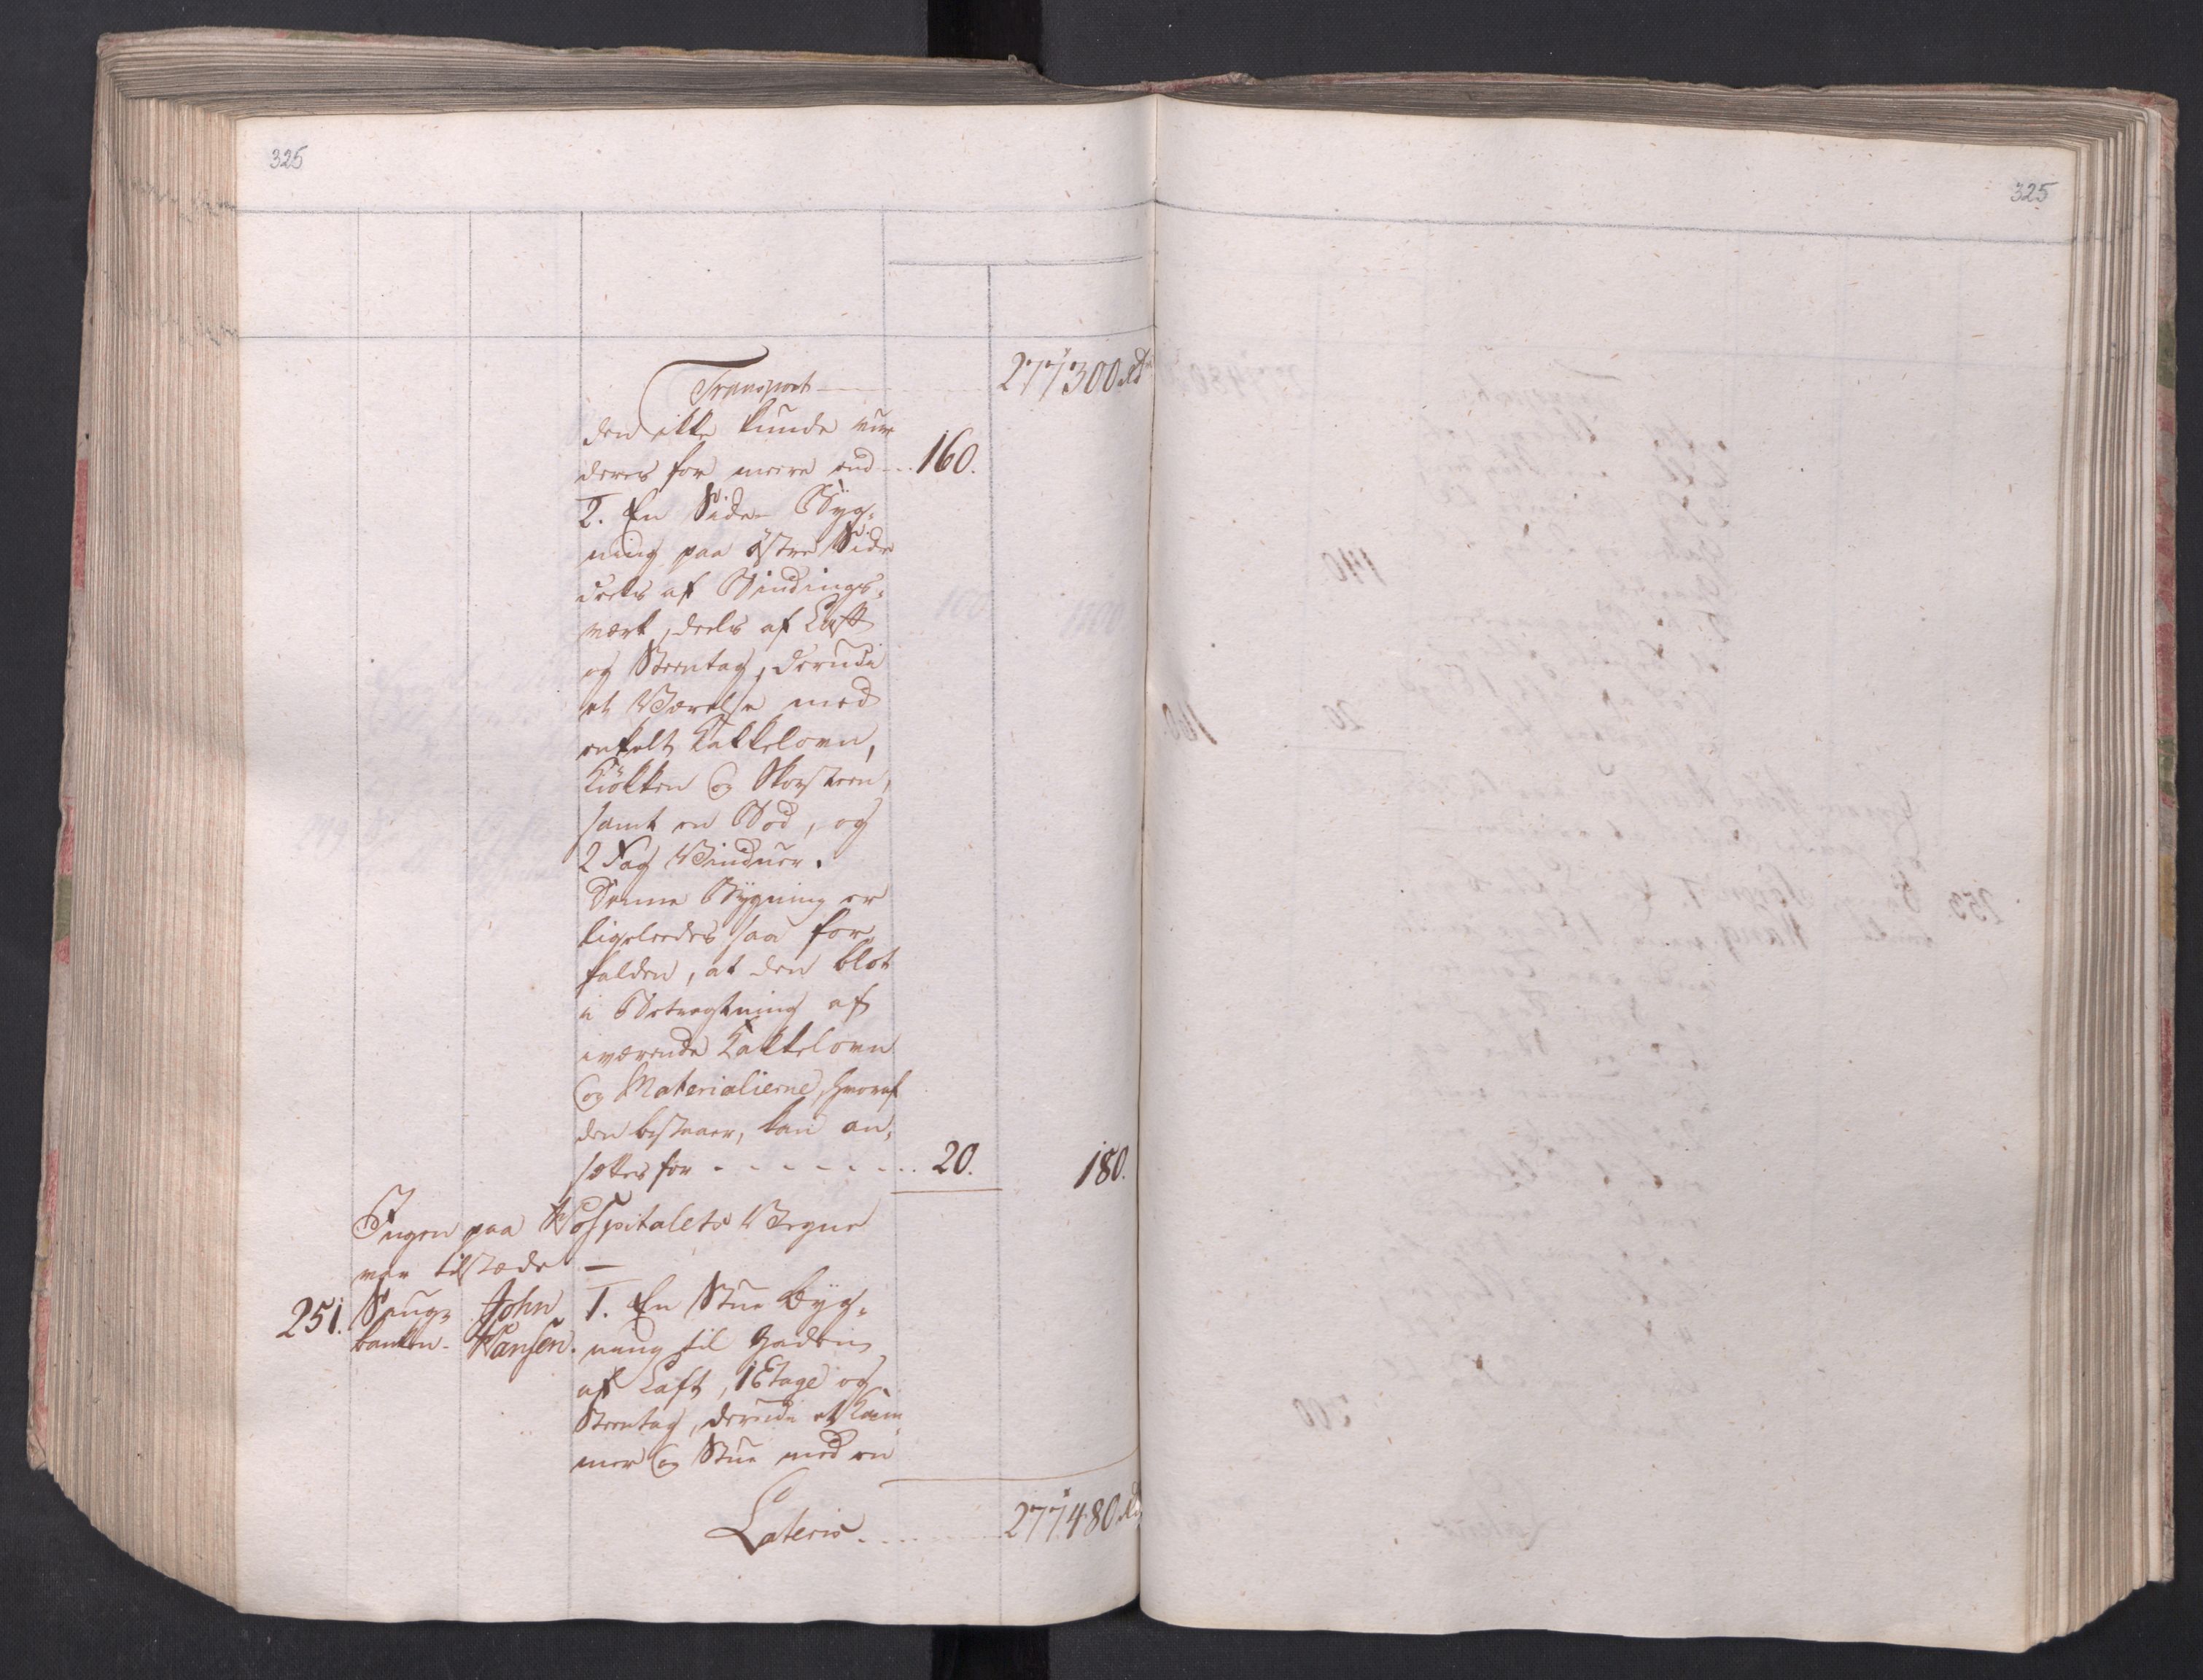 325
325
Transport 277300 rd
den ikke kunde vur
deres for meere end - . . 160.
2. En Side-Byg-
ning paa østre Side
deels af Bindings-
værk, deels af Laft
og Steentag, derudi
et Værelse med
enkelt Kakkelovn,
Kiøkken og Skorsteen,
samt en Bod, og
2 Fag Vinduer.
Denne Bygning er
ligeledes saa for
falden, at den blot
i Betragtning af
iværende Kakkelovn
og Materialierne, hvoraf
den bestaaer, kan an-
sættes for - - - - - - . . 20. 180.
Ingen paa Hospitalets Vegne
var tilstæde -
251. Saug- John 1. En Stue byg-
banken. Hansen. ning til Gaden
af Laft, 1 Etage og
Steentag, derudi et Kam
mer og Stue med en
Lateris . - - - - 277480 rd